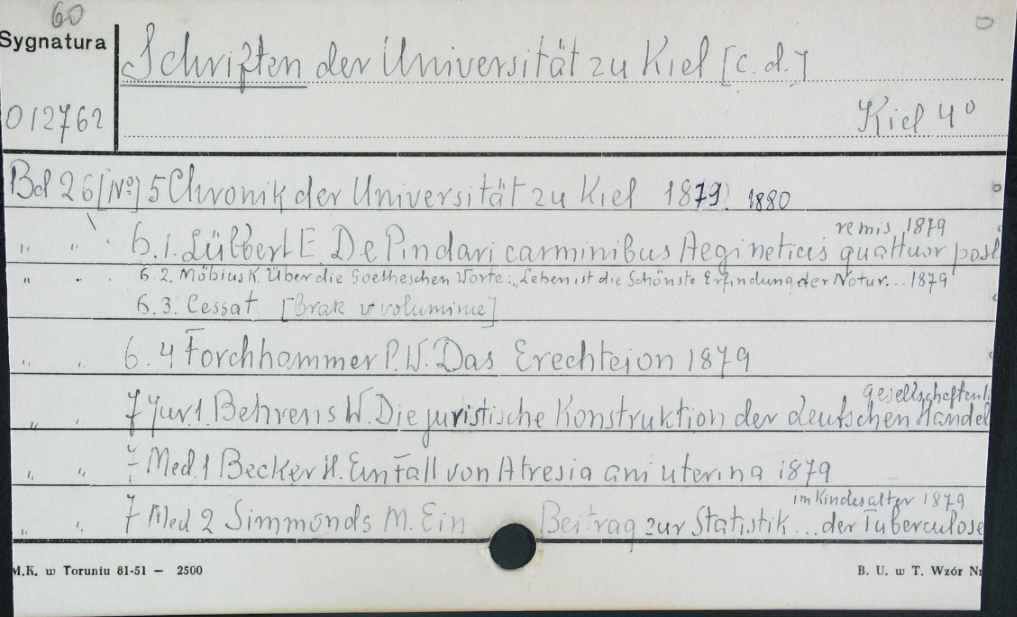 60
Sygnatura
Schriften der Universität zu Kiel [c.d.]
012762
Kiel 4°
Bd 26 [N°] 5 Chronik der Universität zu Kiel 1879. 1880
remis 1879
" " 6.1. Lübbert E De Pindari carminibus Aegineticis quattuor post
" " 6.2. Möbius K. Über die Goetheschen Worte: „Leben ist die Schönste Erfindung der Natur... 1879
6.3. Cessat [Brak w voluminie]
" " 6.4 Forchhammer P.W. Das Erechteion 1879
gesellschaften 1.
" " 7 Jur 1. Behrens W. Die juristische Konstruktion der deutschen Handel
" " 7 Med. 1 Becker H. Ein Fall von Atresia ani uterina 1879
im Kindesalter 1879
" " 7 Med 2 Simmonds M. Ein Beitrag zur Statistik ... der Tuberculose
M.K. w Toruniu 81-51 — 2500
B. U. w T. Wzór Nr